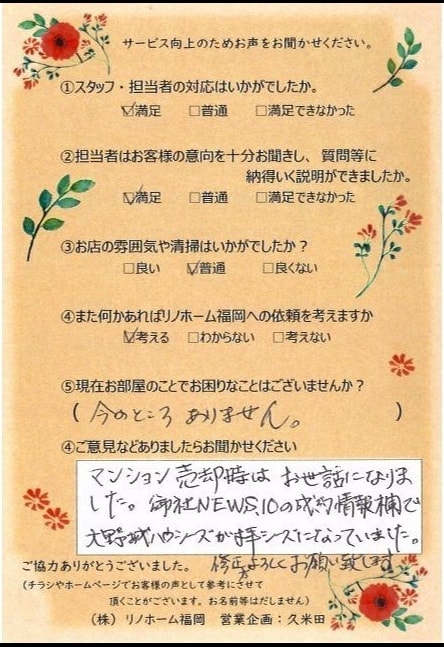 サービス向上のためお声をお聞かせください。
①スタッフ・担当者の対応はいかがでしたか。
☑満足 □普通 □満足できなかった
②担当者はお客様の意向を十分お聞きし、質問等に
納得いく説明ができましたか。
☑満足 □普通 □満足できなかった
③お店の雰囲気や清掃はいかがでしたか?
□良い ☑普通 □良くない
④また何かあればリノホーム福岡への依頼を考えますか
☑考える □わからない □考えない
⑤現在お部屋のことでお困りなことはございませんか?
(今のところありません。)
④ご意見などありましたらお聞かせください
マンション売却時はお世話になりま
した。御社NEWS.10の成約情報欄で
大野城ハウシーズが拝シーズになっていました。
修正方よろしくお願い致します
ご協力ありがとうございました。
(チラシやホームページでお客様の声として参考にさせて
頂くことがございます。お名前等はだしません)
(株)リノホーム福岡 営業企画:久米田